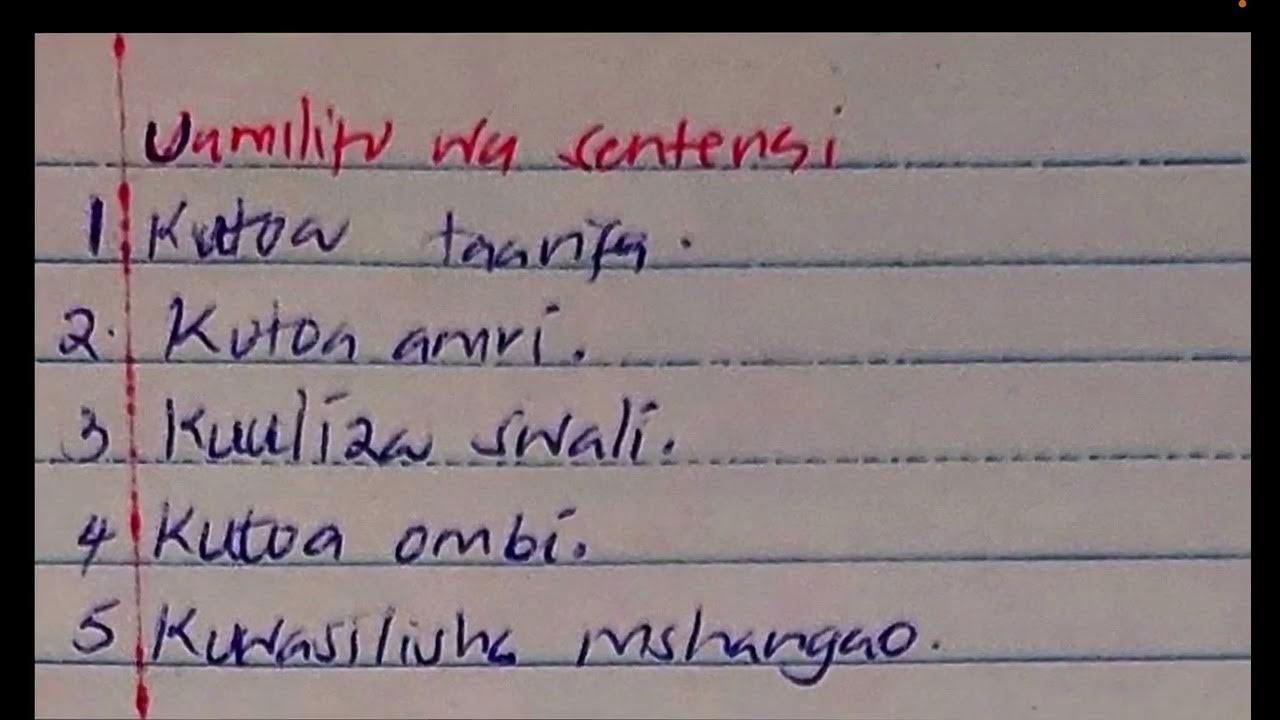 Uamilifu wa sentensi
1 Kutoa taarifa.
2. Kutoa amri.
3 Kuuliza swali.
4 Kutoa ombi.
5 Kuwasilisha mshangao.